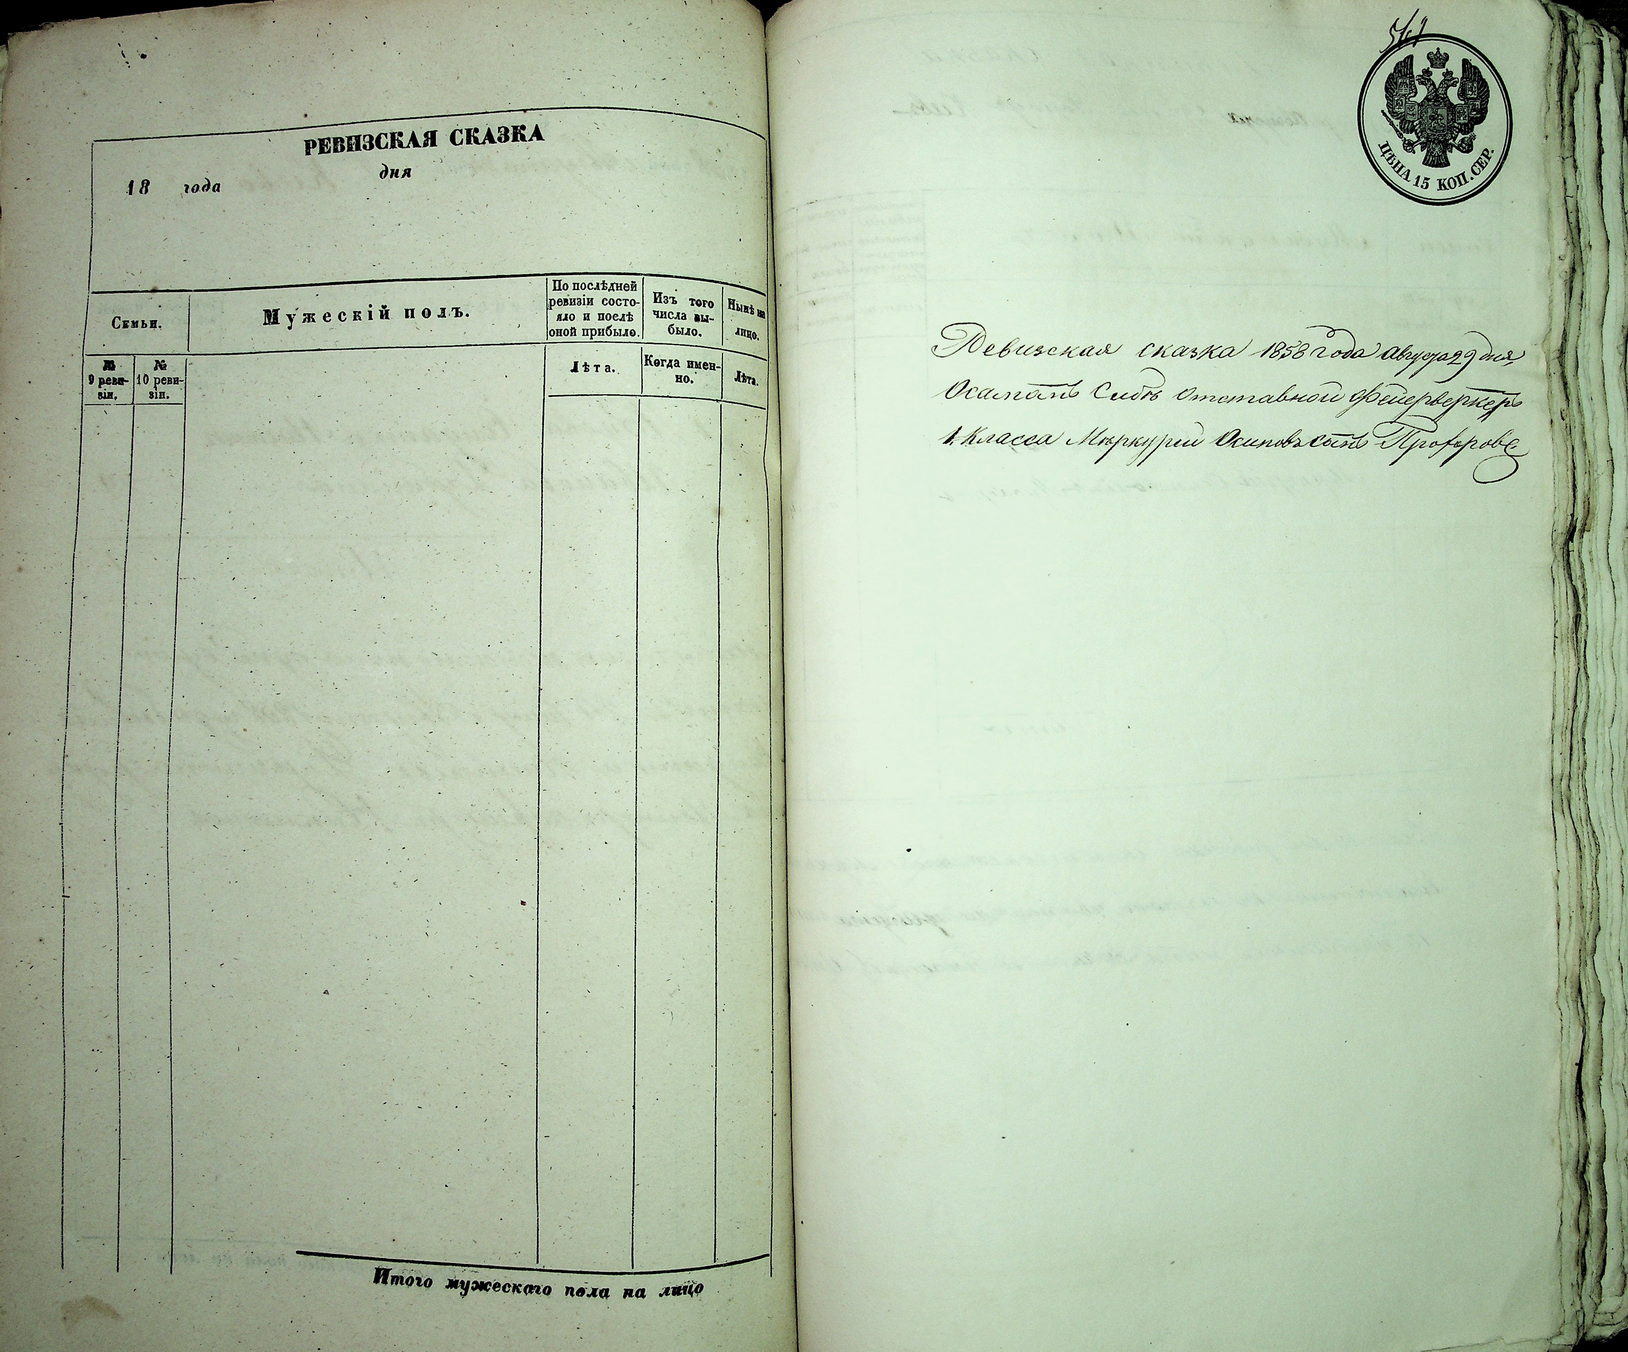 РЕВИЗСКАЯ СКАЗКА
дня
18 года
Семьи.
Мужескій полъ.
По послѣдней ревизіи состояло и послѣ оной прибыло.
Изъ того числа выбыло.
Нынѣ на лицо.
№ 9 ревизіи.
№ 10 ревизіи.
Лѣта.
Когда именно.
Лѣта.
Итого мужескаго пола на лицо
ЦѢНА 15 КОП. СЕР.
Ревизская сказка 1858 года августа 29 дня,
Отставной Фейерверкеръ
1. Класса Меркурий Осиповъ сынъ